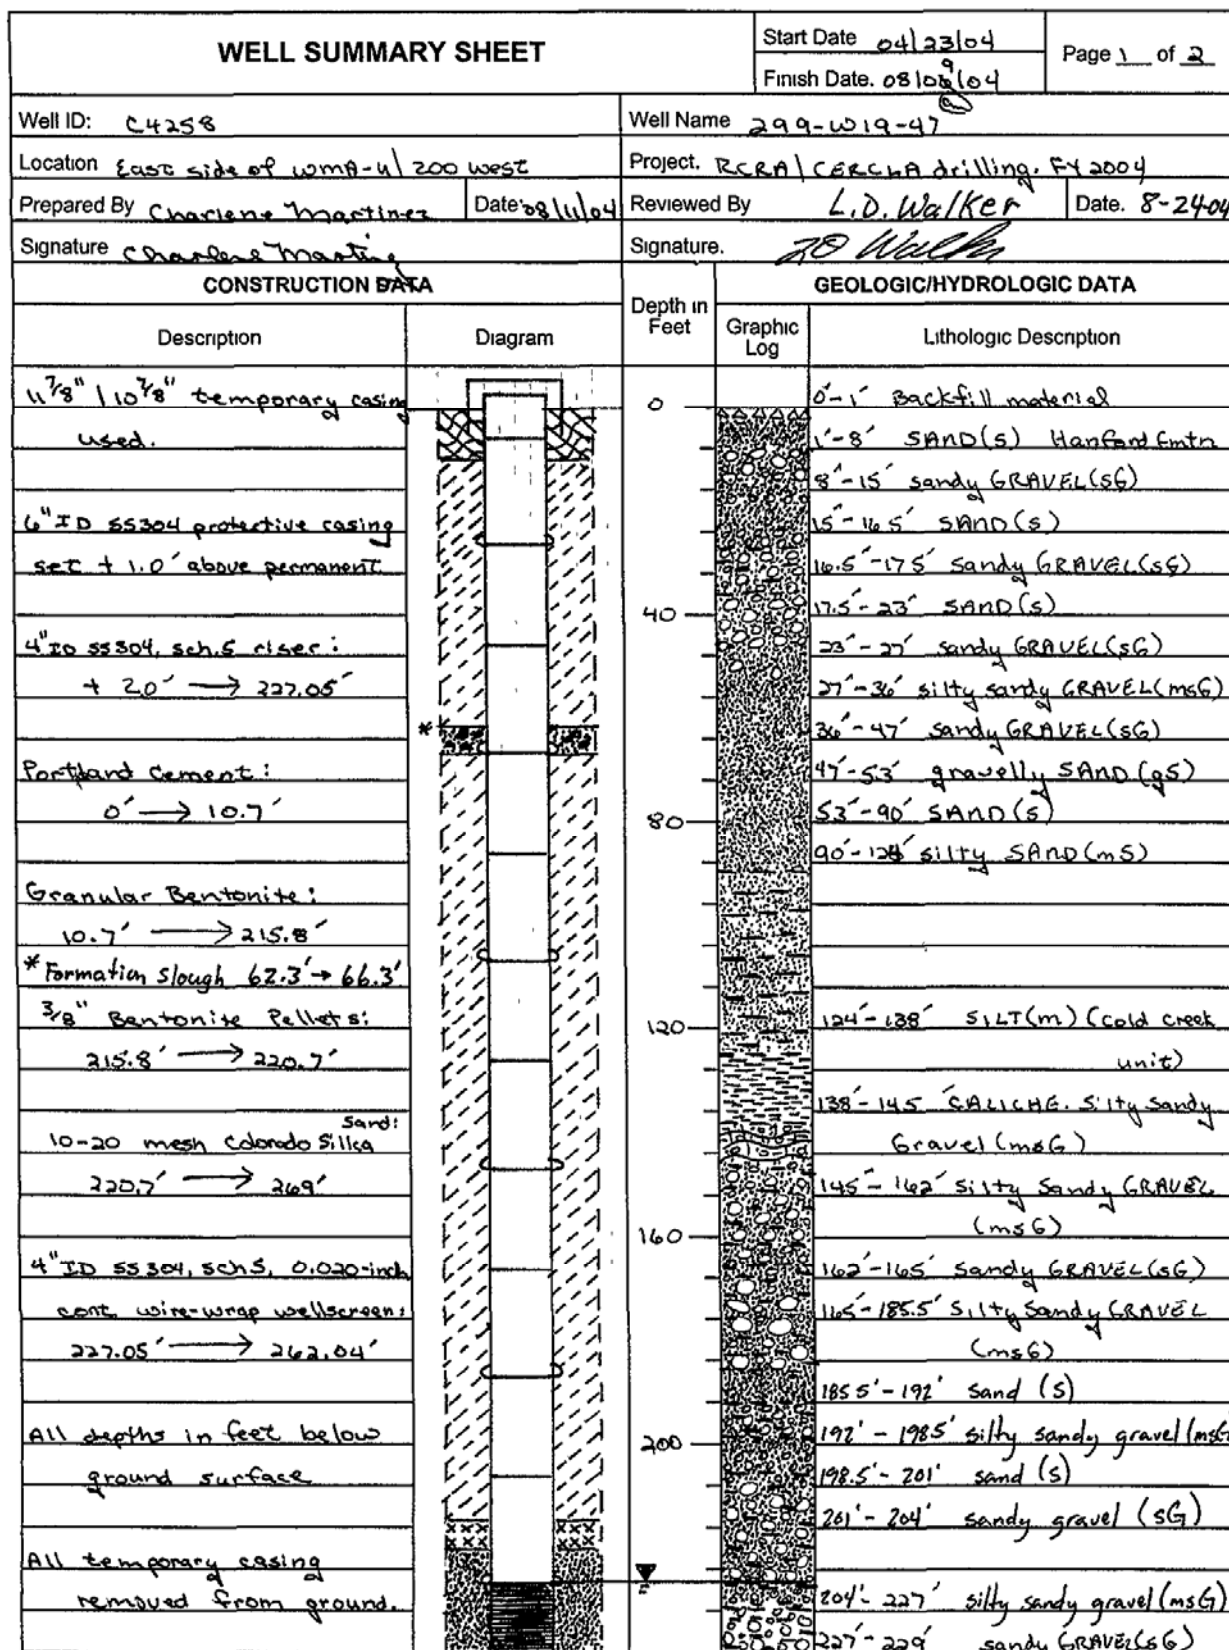 WELL SUMMARY SHEET
Start Date 04/23/04
Finish Date. 08/09/04
Page 1 of 2
Well ID: C4258
Well Name 299-W19-47
Location East side of WMA-U/200 West
Project. RCRA/CERCLA drilling. FY 2004
Prepared By Charlene Martinez
Date 08/11/04
Reviewed By L.D. Walker
Date. 8-24-04
Signature Charlene Martinez
Signature. LD Walker
CONSTRUCTION DATA
Depth in Feet
GEOLOGIC/HYDROLOGIC DATA
Description
Diagram
Graphic Log
Lithologic Description
11 7/8" / 10 7/8" temporary casing
used.
6" ID SS304 protective casing
set + 1.0' above permanent
4" ID SS304, sch.5 riser:
+ 2.0' → 227.05'
Portland Cement:
0' → 10.7'
Granular Bentonite:
10.7' → 215.8'
* Formation Slough 62.3' → 66.3'
3/8" Bentonite Pellets:
215.8' → 220.7'
10-20 mesh Colorado Silica Sand:
220.7' → 269'
4" ID SS304, sch5, 0.020-inch
cont wire-wrap wellscreen:
227.05' → 262.04'
All depths in feet below
ground surface
All temporary casing
removed from ground.
*
0
40
80
120
160
200
0'-1' Backfill material
1'-8' SAND(s) Hanford Fmtn
8'-15' sandy GRAVEL(sG)
15'-16.5' SAND(s)
16.5'-17.5' Sandy GRAVEL(sG)
17.5'-23' SAND(s)
23'-27' sandy GRAVEL(sG)
27'-36' silty sandy GRAVEL(msG)
36'-47' sandy GRAVEL(sG)
47'-53' gravelly SAND(gS)
53'-90' SAND(s)
90'-124' silty SAND(mS)
124'-138' SILT(m) (Cold creek
unit)
138'-145' CALICHE. Silty Sandy
Gravel (msG)
145'-162' Silty Sandy GRAVEL
(msG)
162'-165' Sandy GRAVEL(sG)
165'-185.5' Silty Sandy GRAVEL
(msG)
185.5'-192' sand (S)
192'-198.5' silty sandy gravel (msG)
198.5'-201' sand (S)
201'-204' sandy gravel (sG)
204'-227' silty sandy gravel (msG)
227'-229' sandy GRAVEL(sG)